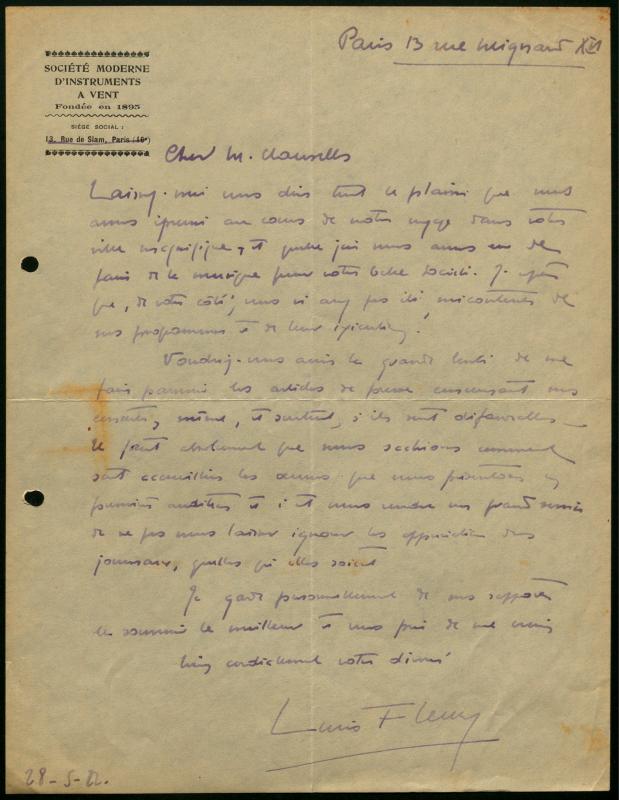 Paris 13 rue Mignard XVI
SOCIÉTÉ MODERNE
D'INSTRUMENTS
A VENT
Fondée en 1895
SIÈGE SOCIAL :
13, Rue de Siam, Paris (16e)
Cher M. Clausells
Laissez-moi vous dire tout le plaisir que nous
avons éprouvé au cours de notre voyage dans votre
ville magnifique, et quelle joie nous avons eu de
faire de la musique pour votre belle Société. J'espère
que, de votre côté, vous n'avez pas été mécontents de
nos programmes et de leur exécution.
Voudriez-vous avoir la grande bonté de me
faire parvenir les articles de presse concernant nos
concerts, même, et surtout, s'ils sont défavorables
Il faut absolument que nous sachions comment
sont accueillies les œuvres que nous présentons en
premières auditions et c'est nous rendre un grand service
de ne pas nous laisser ignorer les appréciations des
journaux, quelles qu'elles soient
Je garde personnellement de nos rapports
le souvenir le meilleur et vous prie de me croire
bien cordialement votre dévoué
Louis Fleury
28-5-22.